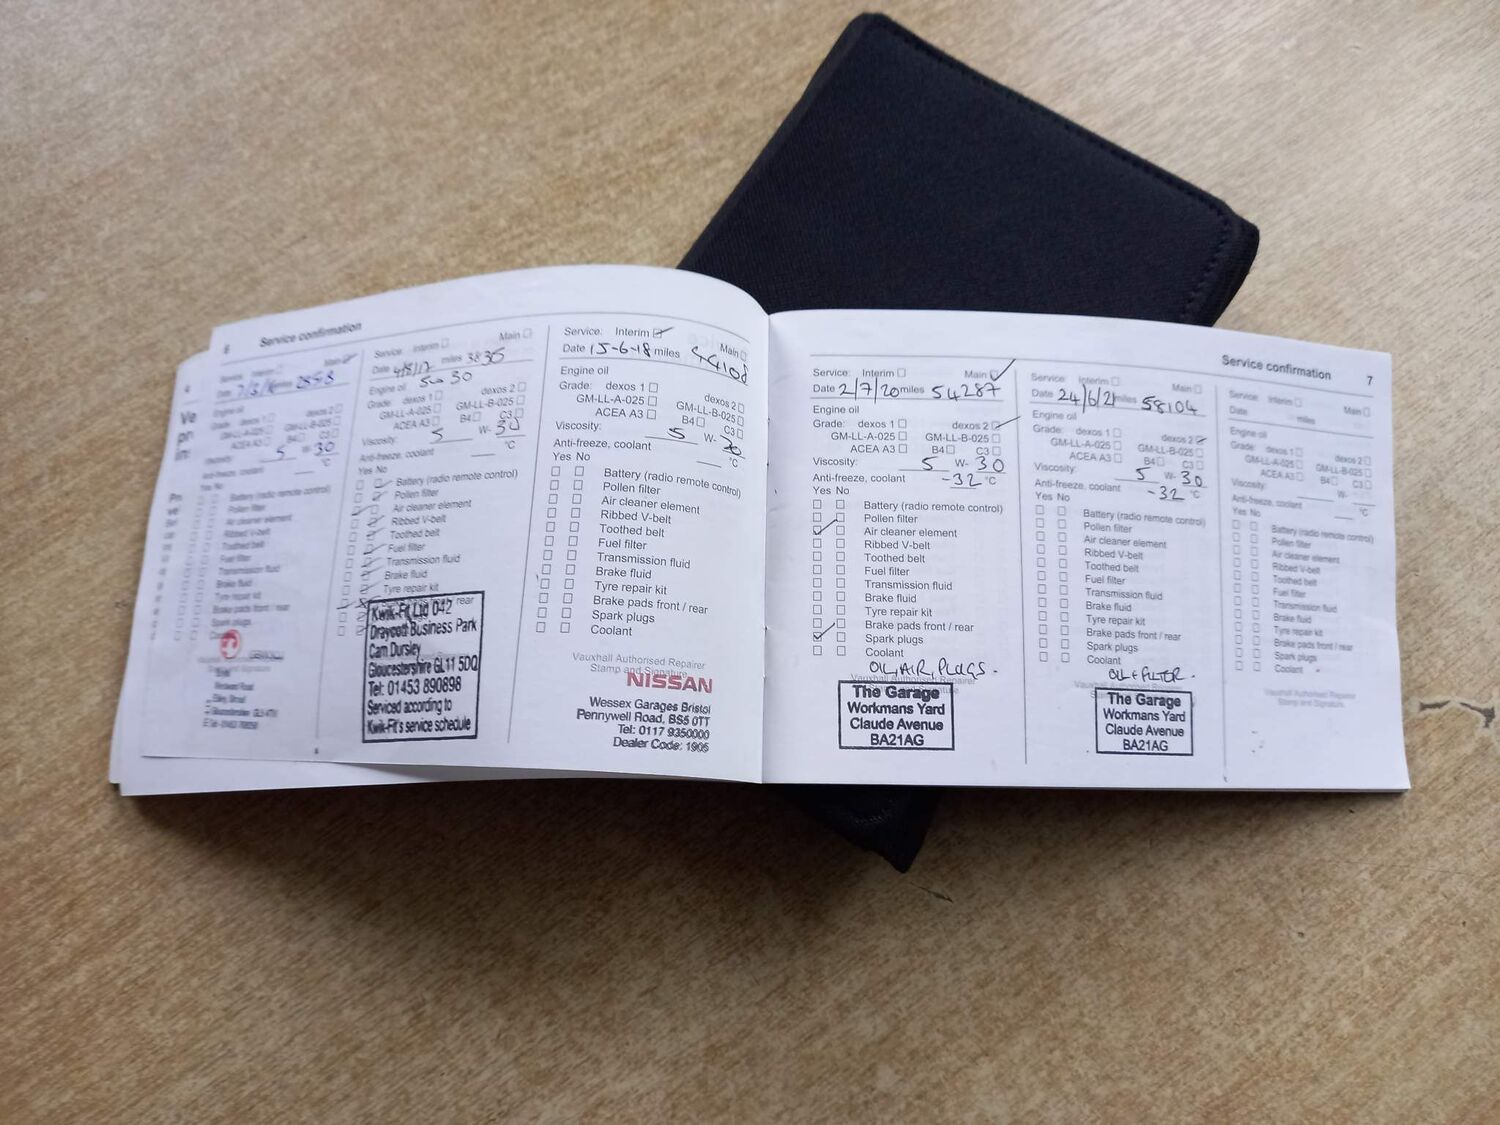 6 Service confirmation
Service: Interim
Main
Date
Engine oil
dexos 2
Service: Interim
Main
Date 4/8/17 miles 3835
Engine oil 5w 30
dexos 2
Grade: dexos 1
GM-LL-A-025
GM-LL-B-025
ACEA A3
B4
C3
Viscosity: 5 W- 30
Anti-freeze, coolant °C
Yes No
Battery (radio remote control)
Pollen filter
Air cleaner element
Ribbed V-belt
Toothed belt
Fuel filter
Transmission fluid
Brake fluid
Tyre repair kit
rear
Kwik-Fit Ltd 042
Draycott Business Park
Cam Dursley
Gloucestershire GL11 5DQ
Tel: 01453 890898
Serviced according to
Kwik-Fit's service schedule
Service: Interim
Main
Date 15-6-18 miles 44108
Engine oil
Grade: dexos 1
dexos 2
GM-LL-A-025
GM-LL-B-025
ACEA A3
B4
C3
Viscosity: 5 W- 30
Anti-freeze, coolant °C
Yes No
Battery (radio remote control)
Pollen filter
Air cleaner element
Ribbed V-belt
Toothed belt
Fuel filter
Transmission fluid
Brake fluid
Tyre repair kit
Brake pads front / rear
Spark plugs
Coolant
Vauxhall Authorised Repairer
Stamp and Signature
NISSAN
Wessex Garages Bristol
Pennywell Road, BS5 0TT
Tel: 0117 9350000
Dealer Code: 1905
Service confirmation 7
Service: Interim
Main
Date 2/7/20 miles 54287
Engine oil
Grade: dexos 1
dexos 2
GM-LL-A-025
GM-LL-B-025
ACEA A3
B4
C3
Viscosity: 5 W- 30
Anti-freeze, coolant -32 °C
Yes No
Battery (radio remote control)
Pollen filter
Air cleaner element
Ribbed V-belt
Toothed belt
Fuel filter
Transmission fluid
Brake fluid
Tyre repair kit
Brake pads front / rear
Spark plugs
Coolant
OIL, AIR, PLUGS.
Vauxhall Authorised Repairer
The Garage
Workmans Yard
Claude Avenue
BA21AG
Service: Interim
Main
Date 24/6/21 miles 58104
Engine oil
Grade: dexos 1
dexos 2
GM-LL-A-025
GM-LL-B-025
ACEA A3
B4
C3
Viscosity: 5 W- 30
Anti-freeze, coolant -32 °C
Yes No
Battery (radio remote control)
Pollen filter
Air cleaner element
Ribbed V-belt
Toothed belt
Fuel filter
Transmission fluid
Brake fluid
Tyre repair kit
Brake pads front / rear
Spark plugs
Coolant
OIL + FILTER.
The Garage
Workmans Yard
Claude Avenue
BA21AG
Service: Interim
Main
Date miles
Engine oil
Grade: dexos 1
dexos 2
GM-LL-A-025
GM-LL-B-025
ACEA A3
B4
C3
Viscosity: W-
Anti-freeze, coolant °C
Yes No
Battery (radio remote control)
Pollen filter
Air cleaner element
Ribbed V-belt
Toothed belt
Fuel filter
Transmission fluid
Brake fluid
Tyre repair kit
Brake pads front / rear
Spark plugs
Coolant
Vauxhall Authorised Repairer
Stamp and Signature